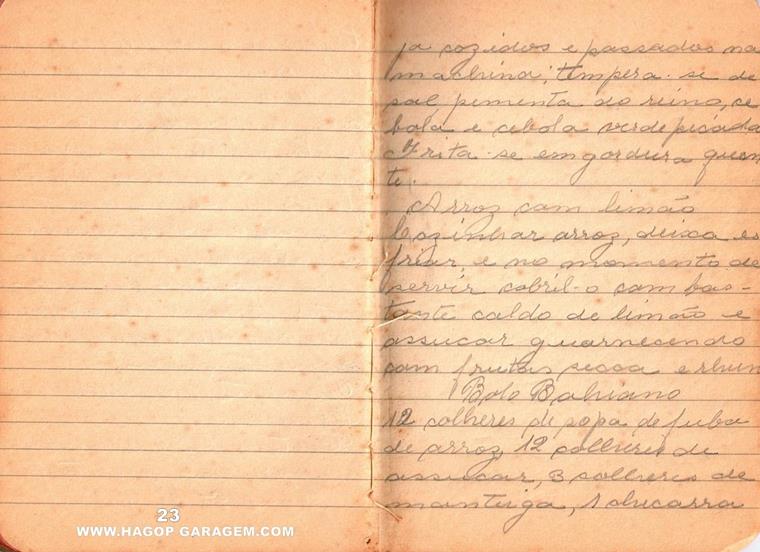 ja cozidos e passados na
machina; tempera-se de
sal pimenta do reino, ce
bola e cebola verde picada
Frita-se em gordura quen
te.
Arroz com limão
Cozinhar arroz, deixa es
friar e no momento de
servir cobril-o com bas-
tante caldo de limão e
assucar guarnecendo
com frutas secca e rhum
Bolo Bahiano
12 colheres de sopa de fuba
de arroz, 12 colheres de
assucar, 3 colheres de
manteiga, 1 chicarra
23
WWW.HAGOP GARAGEM.COM